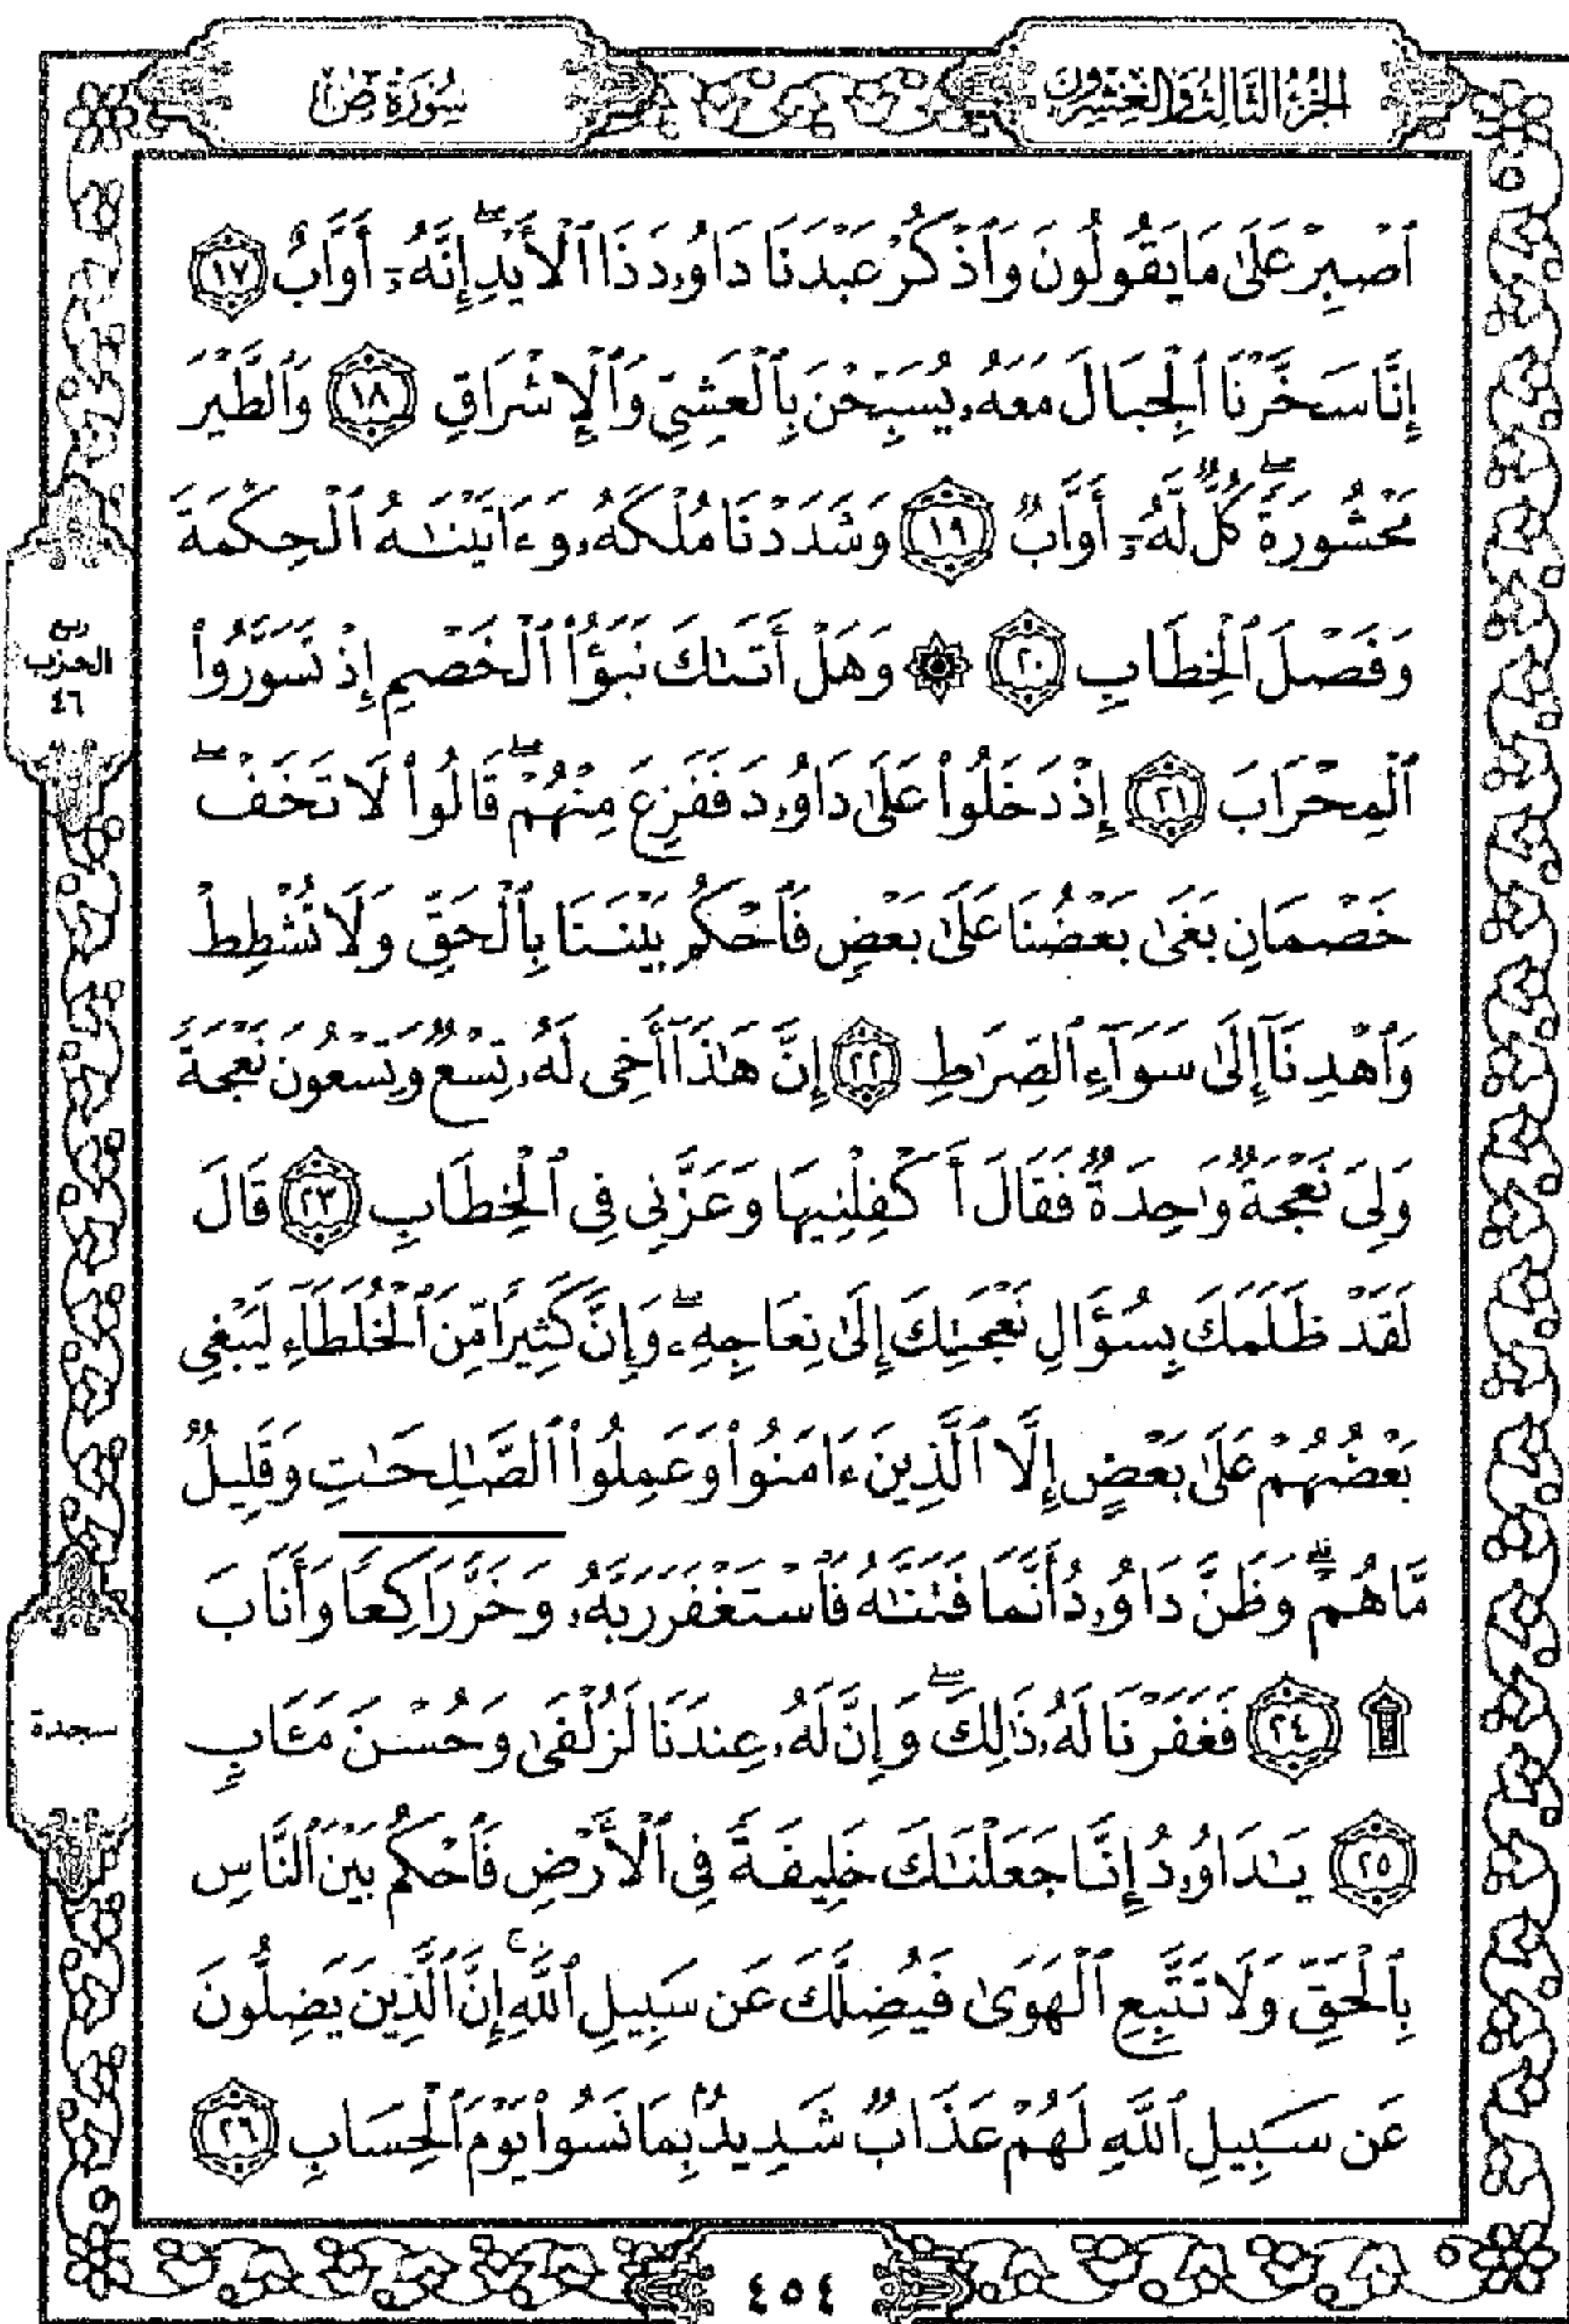 الجزء الثالث والعشرون
سورة ص
ٱصۡبِرۡ عَلَىٰ مَا يَقُولُونَ وَٱذۡكُرۡ عَبۡدَنَا دَاوُۥدَ ذَا ٱلۡأَيۡدِۖ إِنَّهُۥٓ أَوَّابٌ ١٧
إِنَّا سَخَّرۡنَا ٱلۡجِبَالَ مَعَهُۥ يُسَبِّحۡنَ بِٱلۡعَشِيِّ وَٱلۡإِشۡرَاقِ ١٨ وَٱلطَّيۡرَ
مَحۡشُورَةٗۖ كُلّٞ لَّهُۥٓ أَوَّابٞ ١٩ وَشَدَدۡنَا مُلۡكَهُۥ وَءَاتَيۡنَٰهُ ٱلۡحِكۡمَةَ
وَفَصۡلَ ٱلۡخِطَابِ ٢٠ ۞ وَهَلۡ أَتَىٰكَ نَبَؤُاْ ٱلۡخَصۡمِ إِذۡ تَسَوَّرُواْ
ربع
الحزب
٤٦
ٱلۡمِحۡرَابَ ٢١ إِذۡ دَخَلُواْ عَلَىٰ دَاوُۥدَ فَفَزِعَ مِنۡهُمۡۖ قَالُواْ لَا تَخَفۡۖ
خَصۡمَانِ بَغَىٰ بَعۡضُنَا عَلَىٰ بَعۡضٖ فَٱحۡكُم بَيۡنَنَا بِٱلۡحَقِّ وَلَا تُشۡطِطۡ
وَٱهۡدِنَآ إِلَىٰ سَوَآءِ ٱلصِّرَٰطِ ٢٢ إِنَّ هَٰذَآ أَخِي لَهُۥ تِسۡعٞ وَتِسۡعُونَ نَعۡجَةٗ
وَلِيَ نَعۡجَةٞ وَٰحِدَةٞ فَقَالَ أَكۡفِلۡنِيهَا وَعَزَّنِي فِي ٱلۡخِطَابِ ٢٣ قَالَ
لَقَدۡ ظَلَمَكَ بِسُؤَالِ نَعۡجَتِكَ إِلَىٰ نِعَاجِهِۦۖ وَإِنَّ كَثِيرٗا مِّنَ ٱلۡخُلَطَآءِ لَيَبۡغِي
بَعۡضُهُمۡ عَلَىٰ بَعۡضٍ إِلَّا ٱلَّذِينَ ءَامَنُواْ وَعَمِلُواْ ٱلصَّٰلِحَٰتِ وَقَلِيلٞ
مَّا هُمۡۗ وَظَنَّ دَاوُۥدُ أَنَّمَا فَتَنَّٰهُ فَٱسۡتَغۡفَرَ رَبَّهُۥ وَخَرَّۤ رَاكِعٗاۤ وَأَنَابَ
۩ ٢٤ فَغَفَرۡنَا لَهُۥ ذَٰلِكَۖ وَإِنَّ لَهُۥ عِندَنَا لَزُلۡفَىٰ وَحُسۡنَ مَـَٔابٖ
سجدة
٢٥ يَٰدَاوُۥدُ إِنَّا جَعَلۡنَٰكَ خَلِيفَةٗ فِي ٱلۡأَرۡضِ فَٱحۡكُم بَيۡنَ ٱلنَّاسِ
بِٱلۡحَقِّ وَلَا تَتَّبِعِ ٱلۡهَوَىٰ فَيُضِلَّكَ عَن سَبِيلِ ٱللَّهِۚ إِنَّ ٱلَّذِينَ يَضِلُّونَ
عَن سَبِيلِ ٱللَّهِ لَهُمۡ عَذَابٞ شَدِيدُۢ بِمَا نَسُواْ يَوۡمَ ٱلۡحِسَابِ ٢٦
٤٥٤